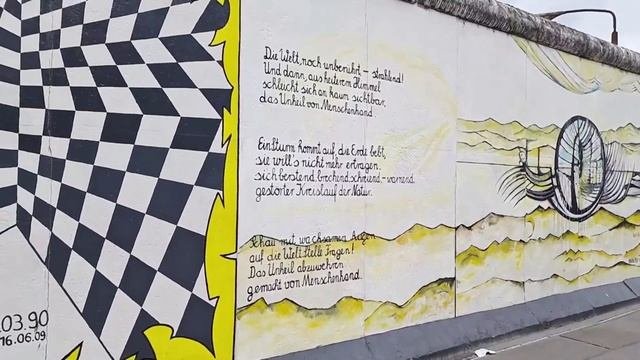 Die Welt, noch unberührt – strahlend!
Und dann, aus heiterem Himmel
schleicht sich an kaum sichtbar,
das Unheil von Menschenhand.
Ein Sturm kommt auf, die Erde bebt,
sie will's nicht mehr ertragen,
sich berstend, brechend, schreiend, – warnend.
gestörter Kreislauf der Natur.
Schau mit wachsamen Augen
auf die Welt stelle Fragen!
Das Unheil abzuwehren
gemacht von Menschenhand.
.03.90
16.06.09